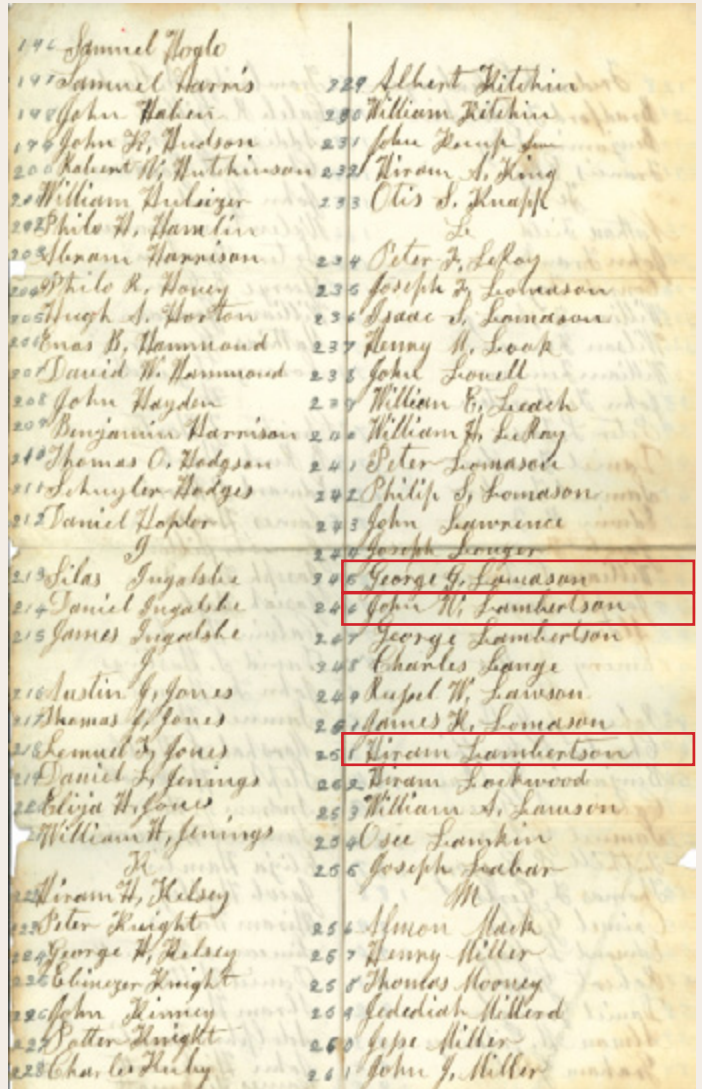 196 Samuel Hogle
197 Samuel Harris
198 John Haben
199 John H. Hudson
200 Robert W. Hutchinson
201 William Hulsizer
202 Philo H. Hamlin
203 Abram Harrison
204 Philo R. Honey
205 Hugh S. Horton
206 Enos B. Hammond
207 David W. Hammond
208 John Hayden
209 Benjamin Harrison
210 Thomas O. Hodgson
211 Schuyler Hodges
212 Daniel Hoplor
I
213 Silas Ingalsbe
214 Daniel Ingalsbe
215 James Ingalsbe
J
216 Austin J. Jones
217 Thomas J. Jones
218 Lemuel F. Jones
219 Daniel L. Jennings
220 Elija H. Jones
William H. Jennings
K
222 Hiram H. Kelsey
223 Peter Knight
224 George H. Kelsey
225 Ebinezer Knight
226 John Kinney
227 Potter Knight
228 Charles Kuby
229 Albert Kitchin
230 William Kitchin
231 John Kemp
232 Hiram A. King
233 Otis S. Knapp
L
234 Peter F. LeRoy
235 Joseph F. Lomason
236 Isaac S. Lomason
237 Henry M. Look
238 John Lovell
239 William E. Leach
240 William H. LeRoy
241 Peter Lomason
242 Philip S. Lomason
243 John Lawrence
244 Joseph Longer
245 George G. Lomason
246 John W. Lambertson
247 George Lambertson
248 Charles Lange
249 Russel W. Lawson
250 James K. Lomason
251 Hiram Lambertson
252 Hiram Lockwood
253 William A. Lawson
254 Osee Lamkin
255 Joseph Labar
M
256 Almon Mack
257 Henry Miller
258 Thomas Mooney
259 Jedediah Millerd
260 Jesse Miller
261 John J. Miller